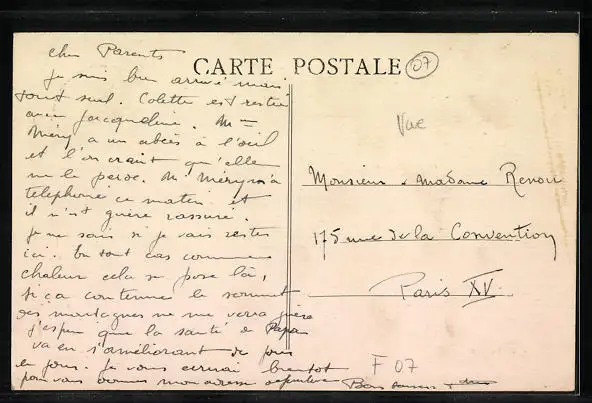 cher Parents
je suis bien arrivé mais
tout seul. Colette est restée
avec Jacqueline. Mme
Méry a un abcès à l'œil
et l'on craint qu'elle
ne le perde. Mr Méry m'a
téléphoné ce matin et
il n'est guère rassuré.
je ne sais si je vais rester
ici. En tout cas comme
chaleur cela se pose là,
si ça continue le sommet
des montagnes ne me verra guère
J'espère que la santé de Papa
va en s'améliorant de jour
en jour. Je vous écrirai bientôt
pour vous donner mon adresse
Bons
CARTE POSTALE
07
Vue
Monsieur & Madame Renou
175 rue de la Convention
Paris XV
F 07